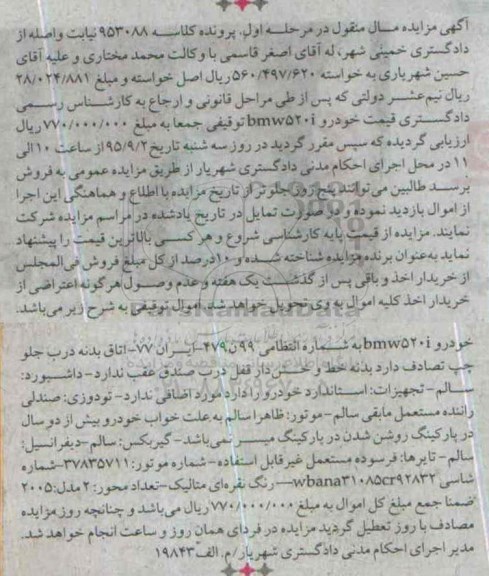 آگهی مزایده مال منقول در مرحله اول. پرونده کلاسه ۹۵۳۰۸۸ نیابت واصله از
دادگستری خمینی شهر، له آقای اصغر قاسمی با وکالت محمد مختاری و علیه آقای
حسین شهریاری به خواسته ۵۶۰/۴۹۷/۶۲۰ ریال اصل خواسته و مبلغ ۲۸/۰۲۴/۸۸۱
ریال نیم‌عشر دولتی که پس از طی مراحل قانونی و ارجاع به کارشناس رسمی
دادگستری قیمت خودرو bmw۵۲۰i توقیفی جمعا به مبلغ ۷۷۰/۰۰۰/۰۰۰ ریال
ارزیابی گردیده که سپس مقرر گردید در روز سه شنبه تاریخ ۹۵/۹/۲ از ساعت ۱۰ الی
۱۱ در محل اجرای احکام مدنی دادگستری شهریار از طریق مزایده عمومی به فروش
برسد طالبین می‌توانند پنج روز جلوتر از تاریخ مزایده با اطلاع و هماهنگی این اجرا
از اموال بازدید نموده و در صورت تمایل در تاریخ یادشده در مراسم مزایده شرکت
نمایند. مزایده از قیمت پایه کارشناسی شروع و هر کسی بالاترین قیمت را پیشنهاد
نماید به‌عنوان برنده مزایده شناخته شده و ۱۰درصد از کل مبلغ فروش فی‌المجلس
از خریدار اخذ و باقی پس از گذشت یک هفته و عدم وصول هرگونه اعتراضی از
خریدار اخذ کلیه اموال به وی تحویل خواهد شد. اموال توقیفی به شرح زیر می‌باشد.
خودرو bmw۵۲۰i به شماره انتظامی ۹۹ن۴۷۹-ایران ۷۷-اتاق بدنه درب جلو
چپ تصادف دارد بدنه خط و خش دار قفل درب صندوق عقب ندارد- داشبورد:
سالم- تجهیزات: استاندارد خودرو را دارد مورد اضافی ندارد- تودوزی: صندلی
راننده مستعمل مابقی سالم- موتور: ظاهرا سالم به علت خواب خودرو بیش از دو سال
در پارکینگ روشن شدن در پارکینگ میسر نمی‌باشد- گیربکس: سالم- دیفرانسیل:
سالم- تایرها: فرسوده مستعمل غیرقابل استفاده- شماره موتور: ۳۷۸۳۵۷۱۱-شماره
شاسی wbana۳۱۰۸۵cr۹۲۸۳۲- رنگ نقره‌ای متالیک-تعداد محور: ۲ مدل: ۲۰۰۵
ضمنا جمع مبلغ کل اموال به مبلغ ۷۷۰/۰۰۰/۰۰۰ ریال می‌باشد و چنانچه روز مزایده
مصادف با روز تعطیل گردید مزایده در فردای همان روز و ساعت انجام خواهد شد.
مدیر اجرای احکام مدنی دادگستری شهریار/م. الف ۱۹۸۴۳